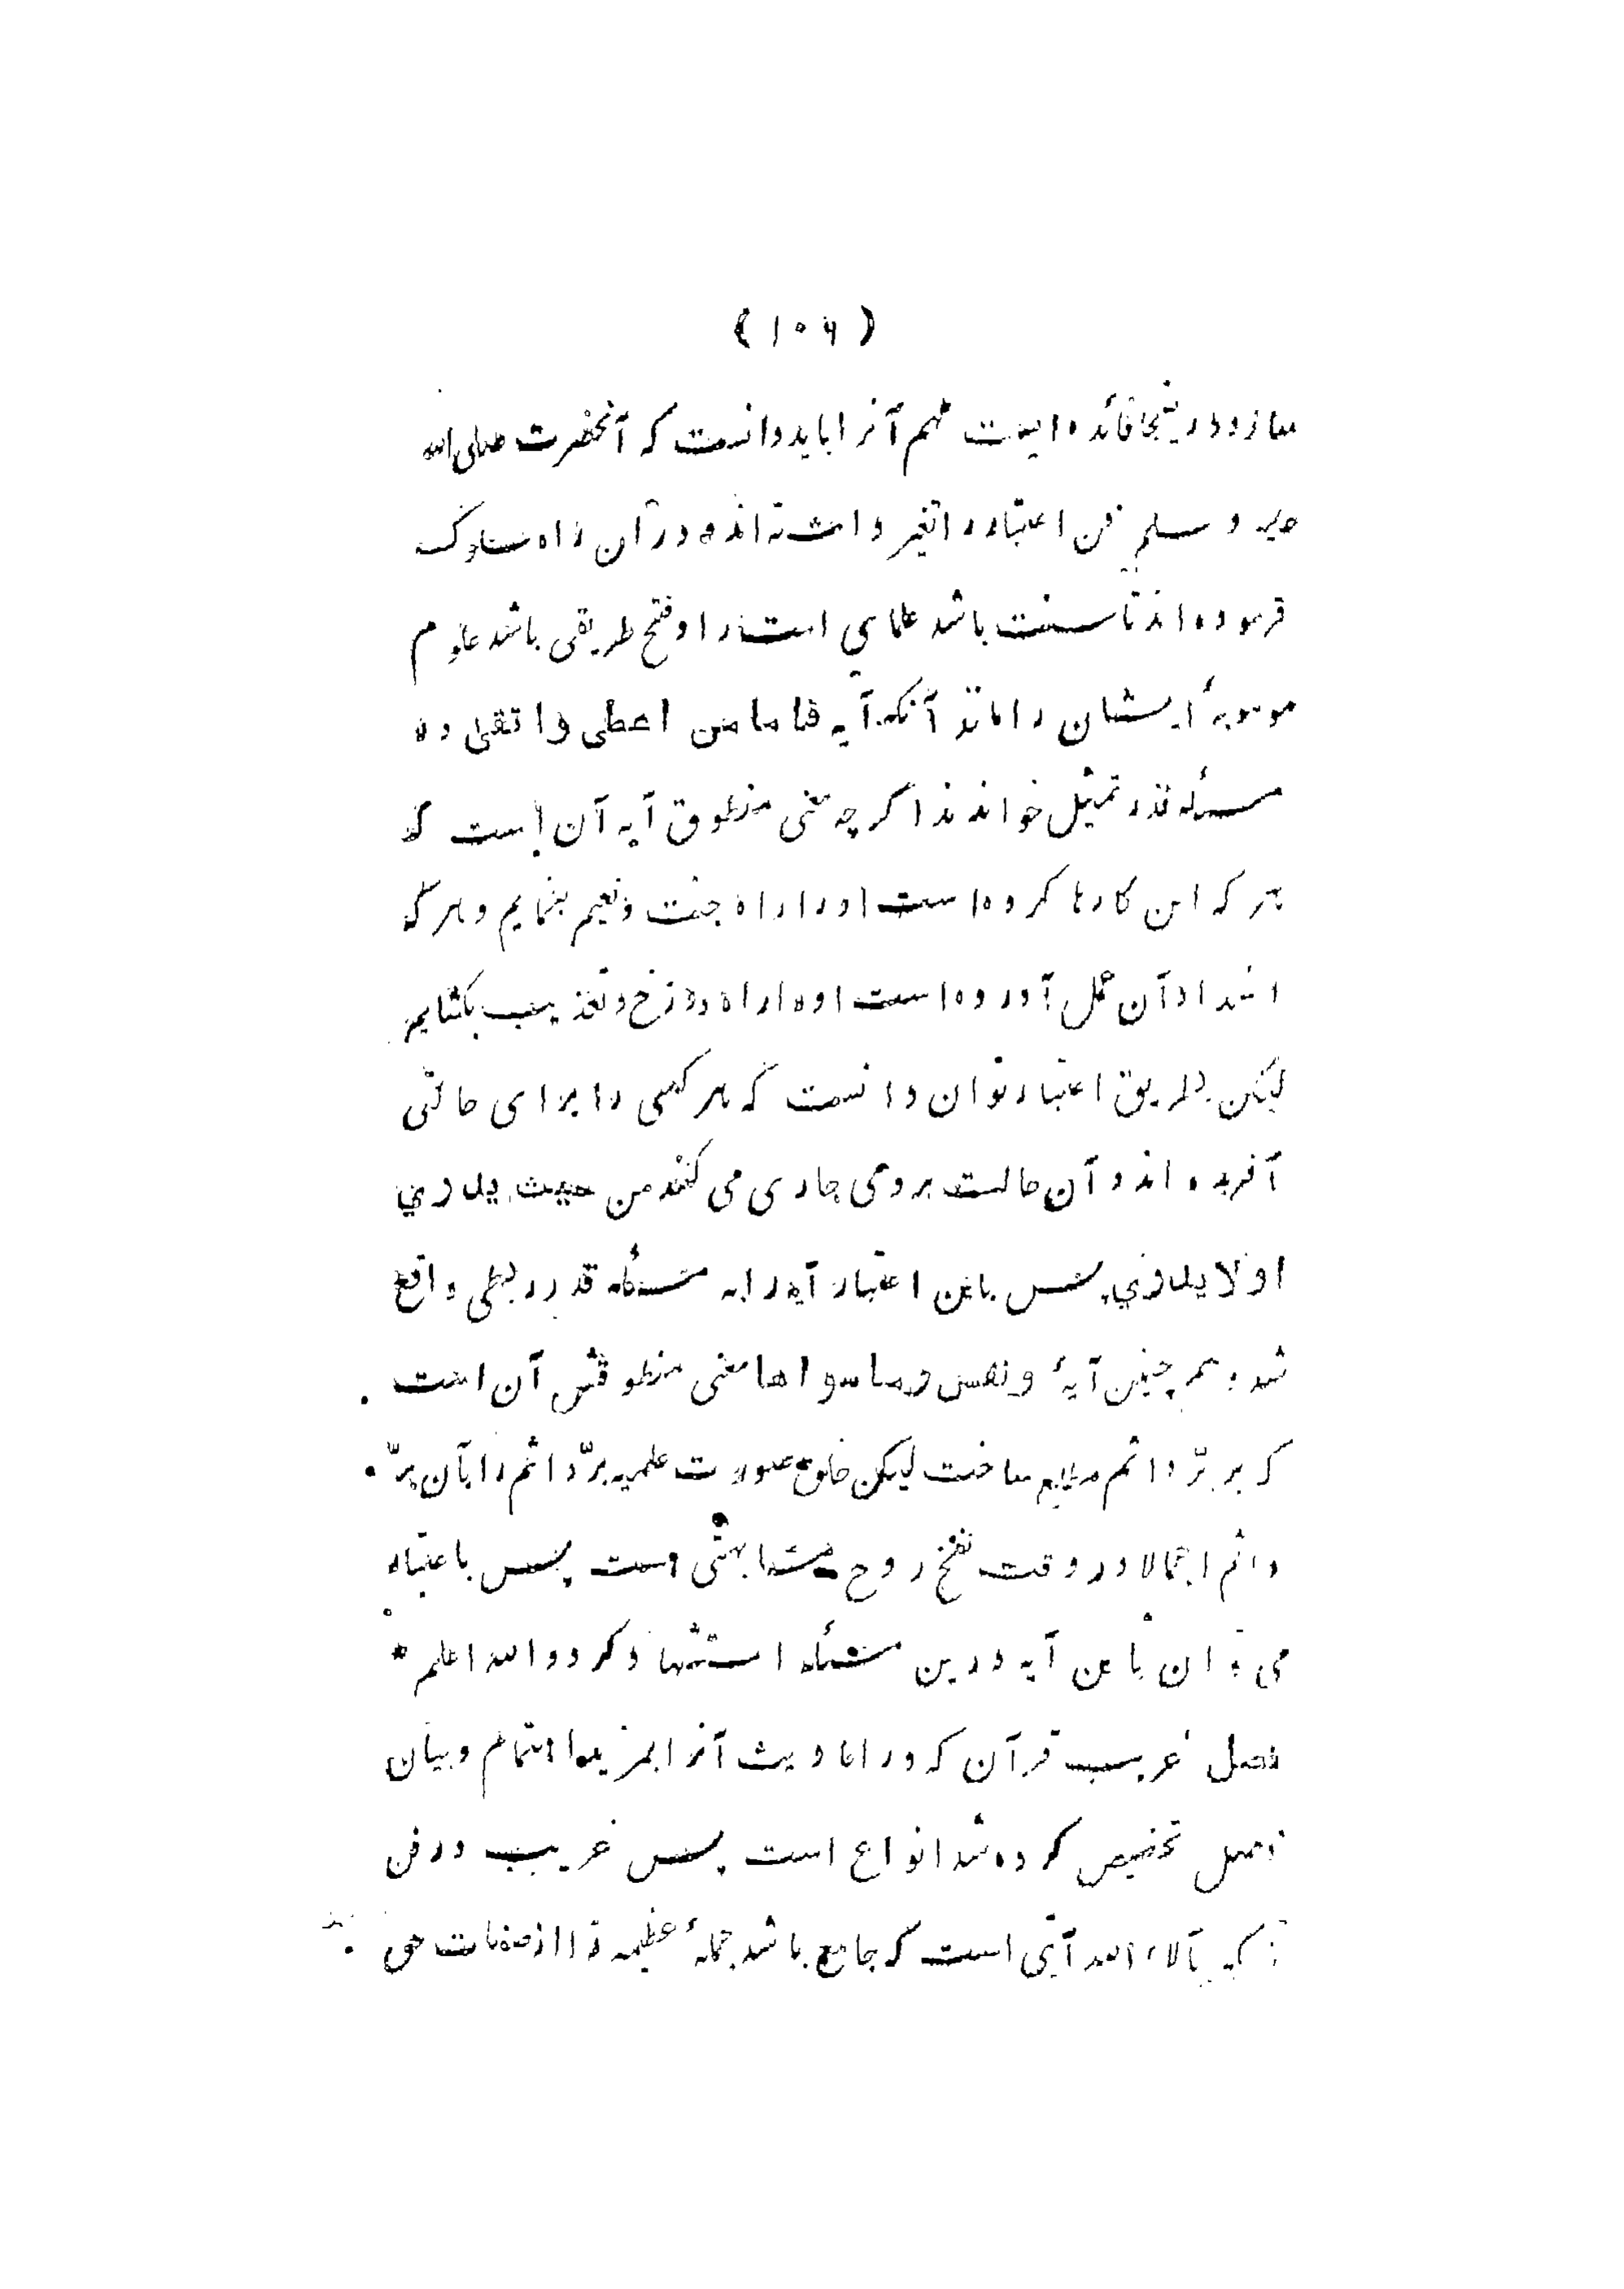 (۱۰۶)
سازد و در ینجا فائده ایست مهم آنرا باید دانست که آنحضرت صلی الله
علیه و سلم فن اعتبار را معتبر داشته اند و در آن راه سلوک
فرموده اند تا سنت باشد علمای امت را و فتح طریقی باشد علوم
موهوبهٔ ایشان را مانند آنکه آیه فاما من اعطی واتقی در
مسئله قدر تمثیل خواندند اگر چه معنی منطوق آیه آن است که
هر که این کارها کرده است او را راه جنت و نعیم بنمایم و هر که
اضداد آن عمل آورده است او را راه دوزخ و تعذیب بکشایم
لیکن بطریق اعتبار توان دانست که هر کسی را برای حالتی
آفریده اند و آن حالت بروی جاری می کنند من حیث یدري
اولا یدري پس باین اعتبار آیه را به مسئله قدر ربطی واقع
شد و هم چنین آیهٔ ونفس وما سواها معنی منطوقش آن است
که بر برّ و اثم مطلع ساخت لیکن خلق صورت علمیه برّ و اثم را بآن برّ
و اثم اجمالا در وقت نفخ روح مشابهتی است پس باعتبار
می توان باین آیه درین مسئله استشهاد کرد و الله اعلم *
فصل غریب قرآن که در احادیث آنرا بمزید اهتمام و بیان
فضل تخصیص کرده شد انواع است پس غریب در فن
تذکیر بآلاء الله آیتی است که جامع باشد جملهٔ عظیمه را از صفات حق